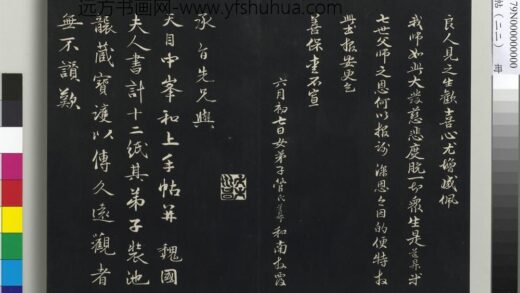 远方书画网-www.yfshuhua.com
79N000000000
帖(二二)
良人見之生歡喜心尤增感佩
我師如此大發慈悲度脫一切衆生是道昇
七世父師之恩何以報謝深恩今因的便特
更乞
善保重不宣
六月初七日女弟子管氏道昇和南拜覆
承旨先兄與
天目中峯和上手帖并魏國
夫人書計十二紙其弟子裝池
藏寶護以傳久遠觀者
無不讚歎